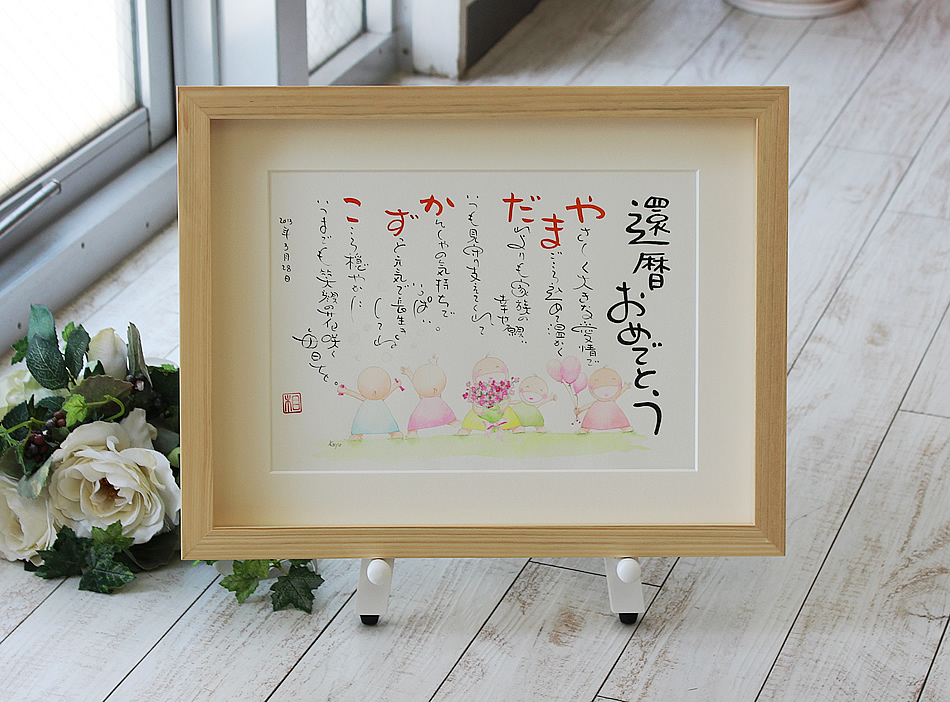 還暦おめでとう
やさしく大きな愛情で
まごころ込めて温かく
だれよりも家族の
幸せ願い
いつも見守り支えてくれて
かんしゃの気持ちで
いっぱい。
ずっと元気で長生き
してね
こころ穏やかに
いつまでも笑顔の花咲く
毎日を。
2013年3月28日